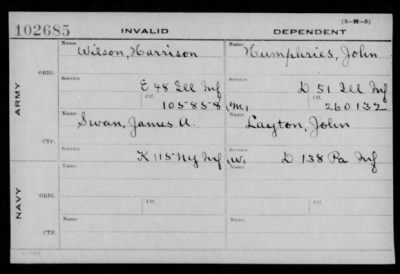 (3-H-5)
102685 INVALID DEPENDENT
Name Name
Wilson, Harrison Humphries, John
ARMY
ORIG.
Service Service
E 48 Ill Inf D 51 Ill Inf
Ctf. Ctf.
105858 M, 260132
Name Name
Swan, James A. Layton, John
CTF.
Service Service
K 115 Ny Inf W. D 138 Pa Inf
NAVY
Name Name
ORIG.
Service Ctf. Service Ctf.
Name Name
CTF.
Service Service